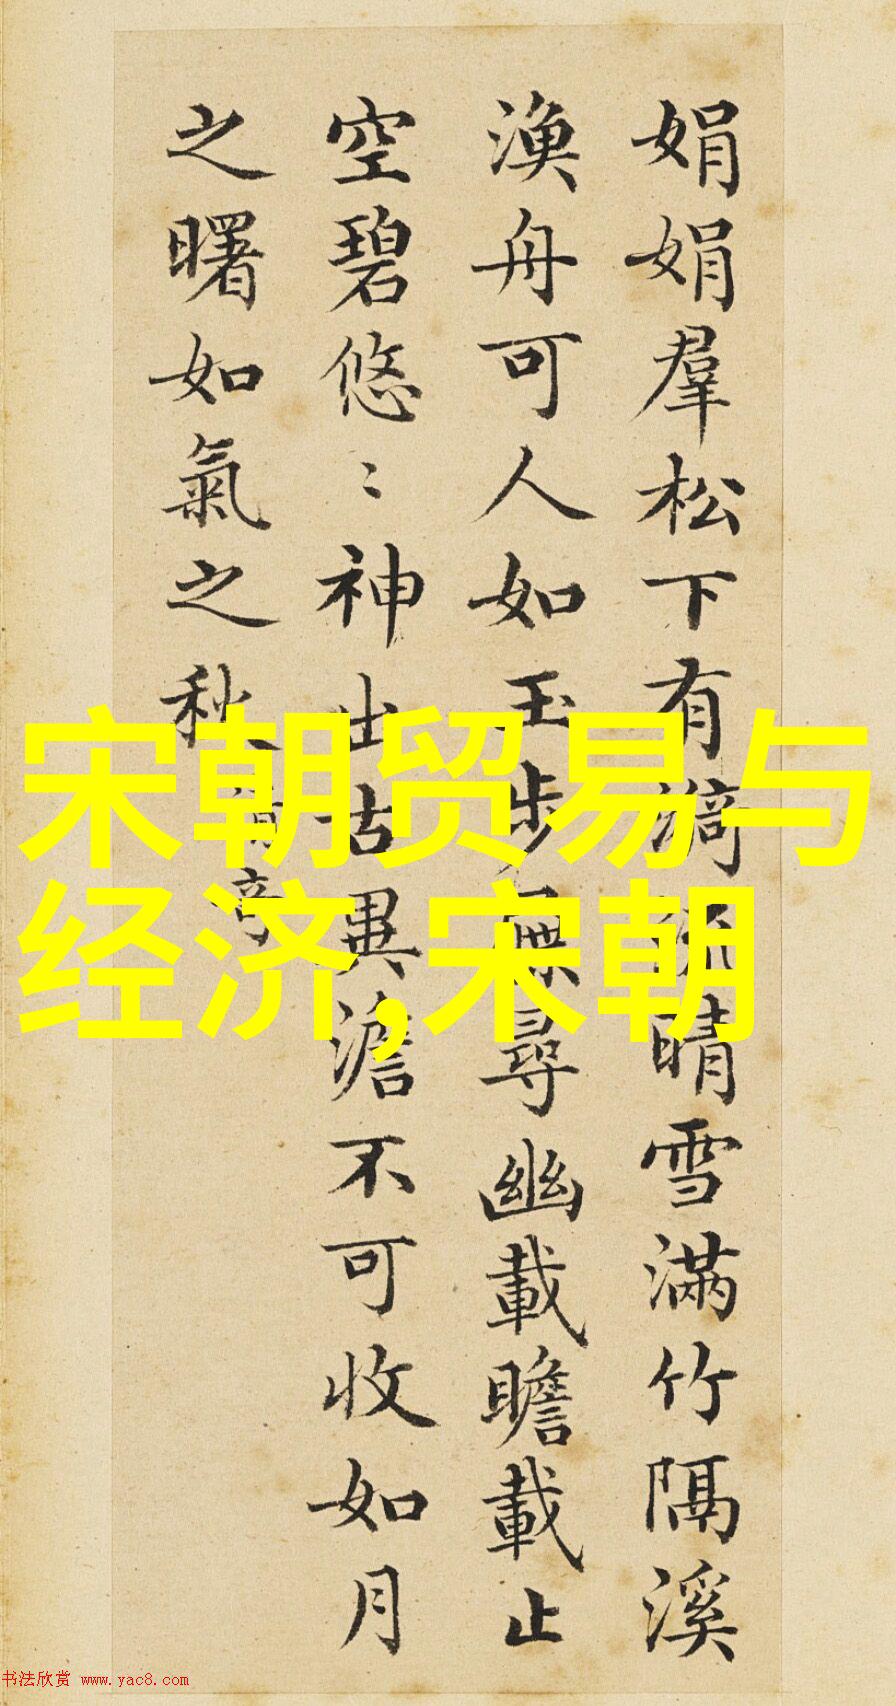 娟娟羣松下有漪流晴雪滿竹隔溪
漁舟可人如玉步尋幽載瞻載止
空碧悠〻神出古異澹不可收如月
之曙如氣之秋
宋朝贸易与
经济,宋朝
书法欣赏 www.yac8.com